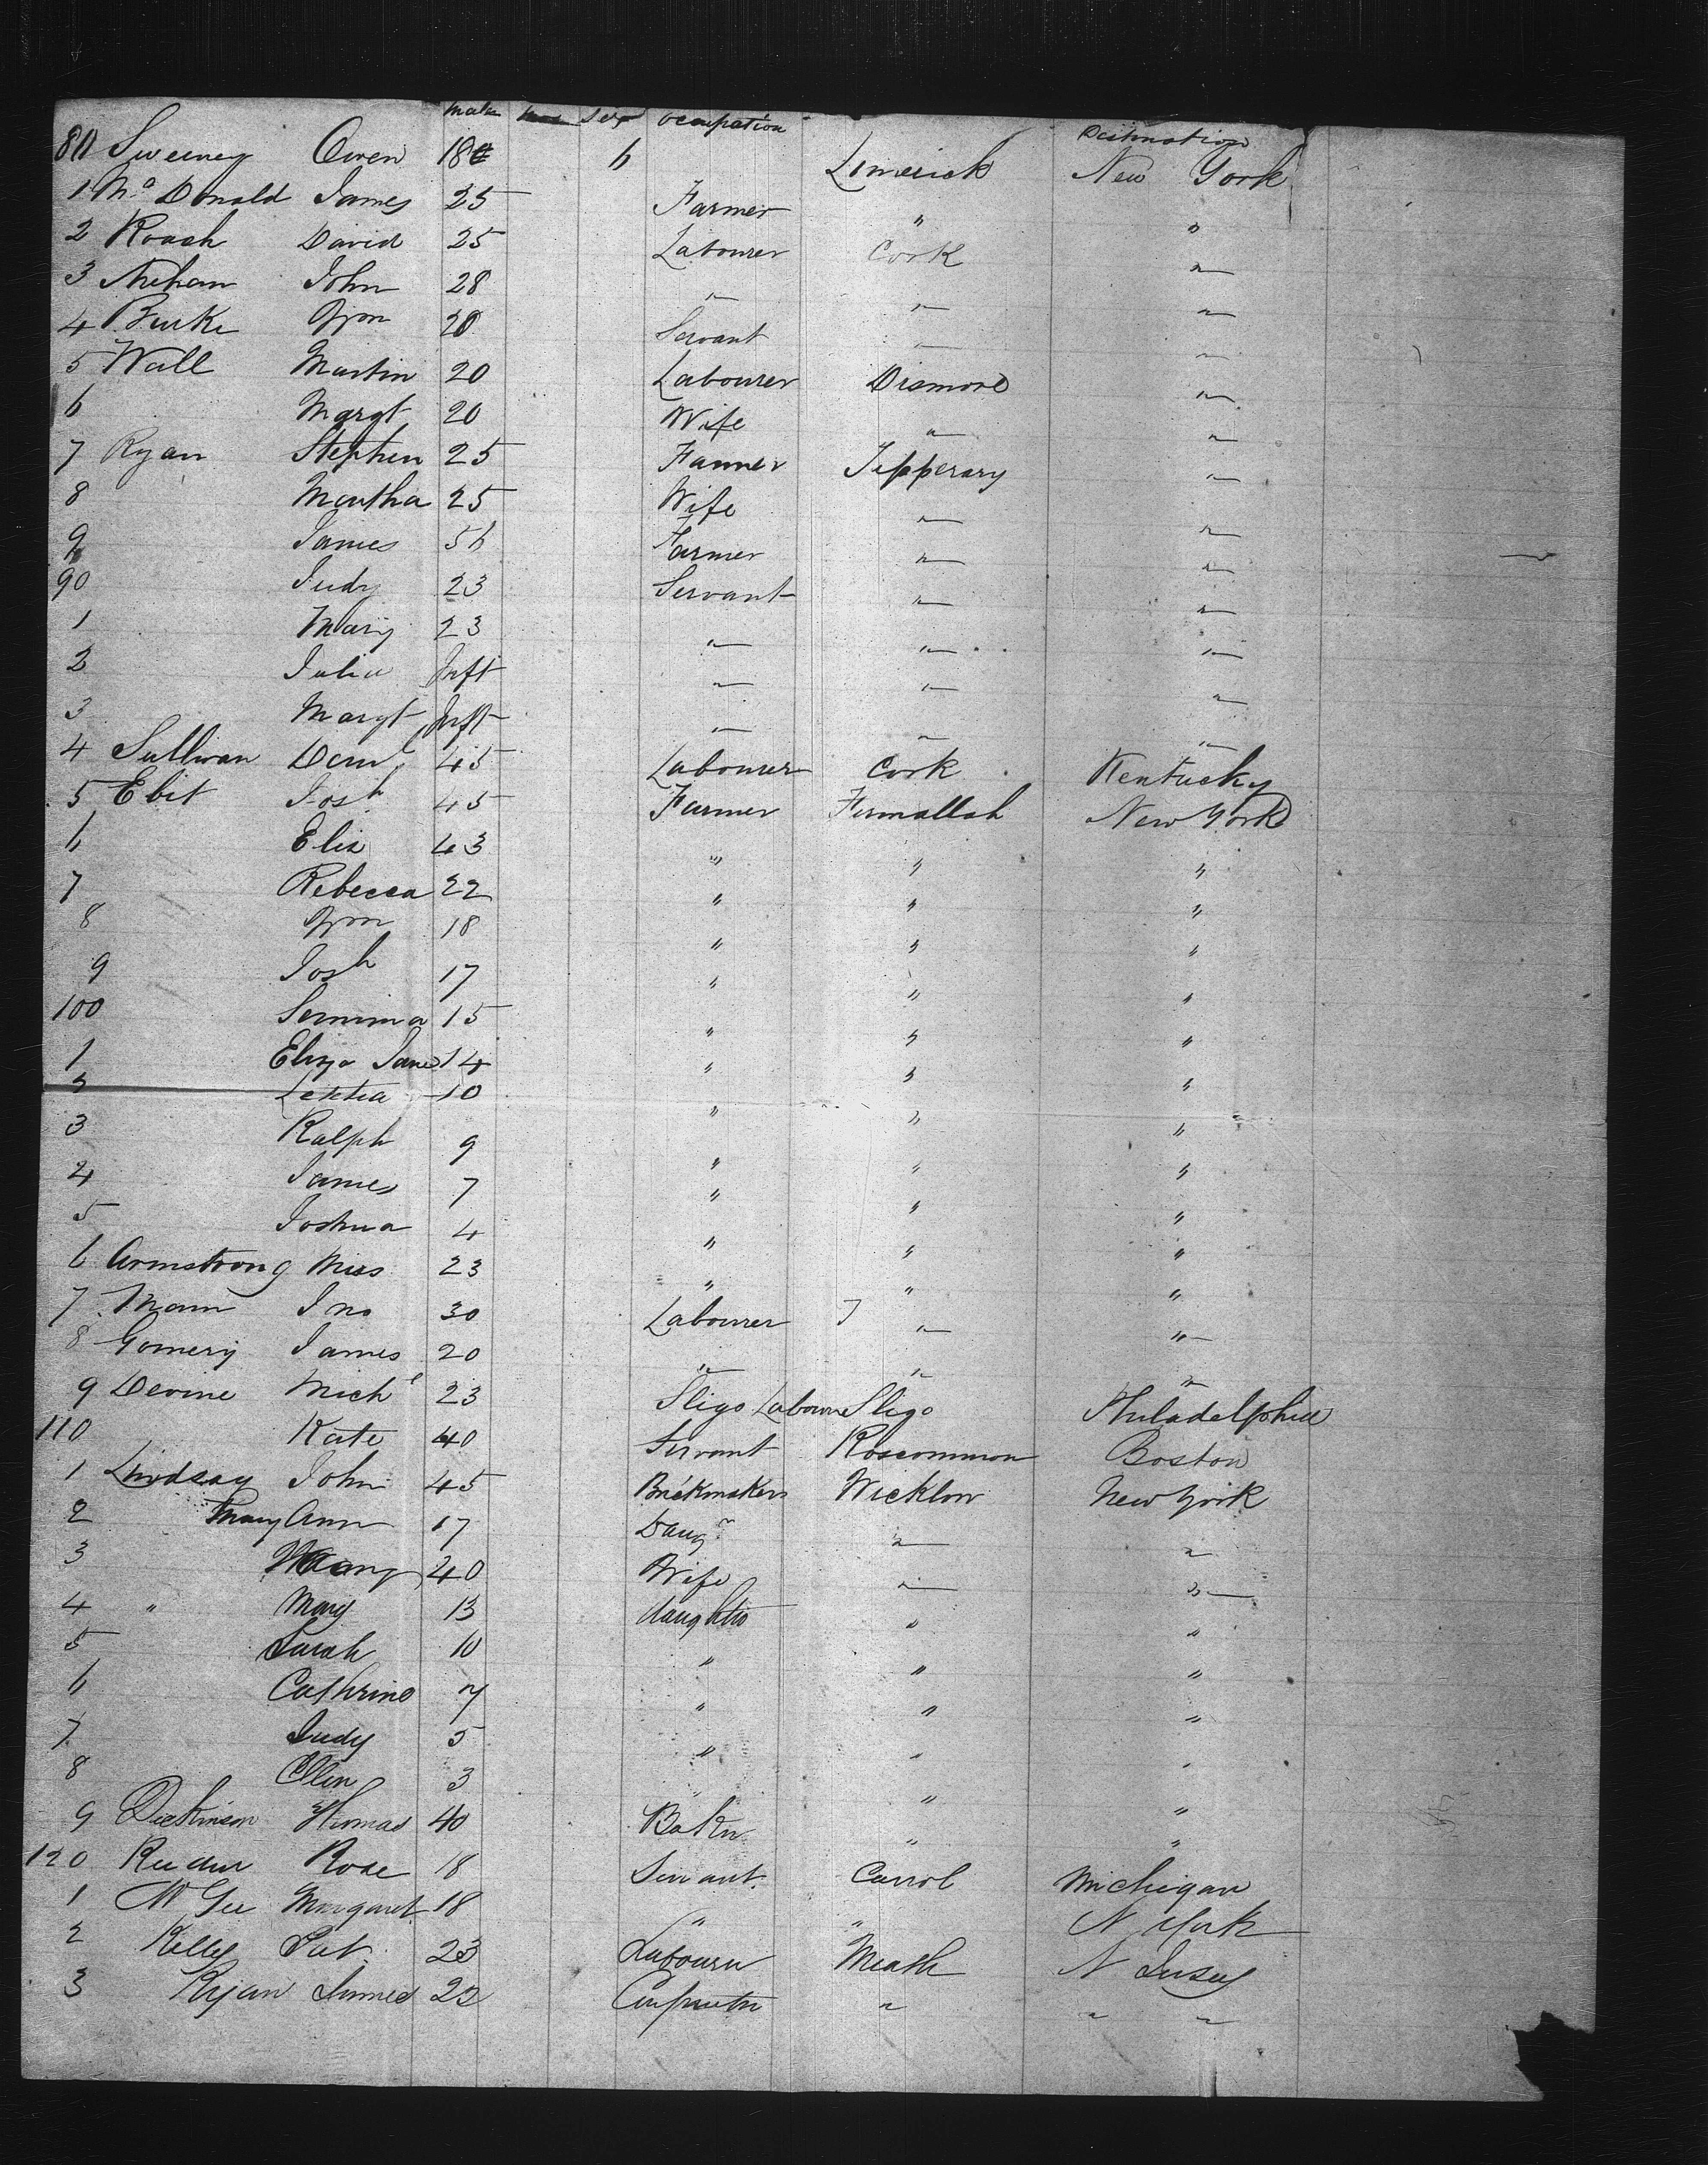 Male Sex Occupation Destination
80 Sweeney Owen 18 h Limerick New York
1 Mc Donald James 25 Farmer " "
2 Roach David 25 Labourer Cork "
3 Mehan John 28 " " "
4 Burke Wm 20 Servant " "
5 Wall Martin 20 Labourer Dismore "
6 Margt 20 Wife " "
7 Ryan Stephen 25 Farmer Tipperary "
8 Martha 25 Wife " "
9 James 56 Farmer " "
90 Judy 23 Servant " "
1 Mary 23 " " "
2 Julia Inft " " "
3 Margt Inft " " "
4 Sullivan Danl 45 Labourer Cork Kentucky
5 Ebit Josh 45 Farmer Fermallah New York
6 Eliz 43 " " "
7 Rebecca 22 " " "
8 Wm 18 " " "
9 Josh 17 " " "
100 Jemima 15 " " "
1 Eliza Jane 14 " " "
2 Letitia 10 " " "
3 Ralph 9 " " "
4 James 7 " " "
5 Joshua 4 " " "
6 Armstrong Miss 23 " " "
7 Mann Jno 30 Labourer " "
8 Gomery James 20 " " "
9 Devine Michl 23 Sligo Labour Sligo Philadelphia
110 Kate 40 Servant Roscommon Boston
1 Lindsay John 45 Brickmaker Wicklow New York
2 Mary Ann 17 Daugr " "
3 Mary 40 Wife " "
4 " Mary 13 daughter " "
5 Sarah 10 " " "
6 Cathrine 7 " " "
7 Judy 5 " " "
8 Ellen 3 " " "
9 Dickinson Thomas 40 Baker " "
120 Rose 18 Servant Carrol Michigan
1 McGee Margaret 18 " " N York
2 Kelly Pat 23 Labourer Meath N Jersey
3 Ryan James 22 Carpenter " " "